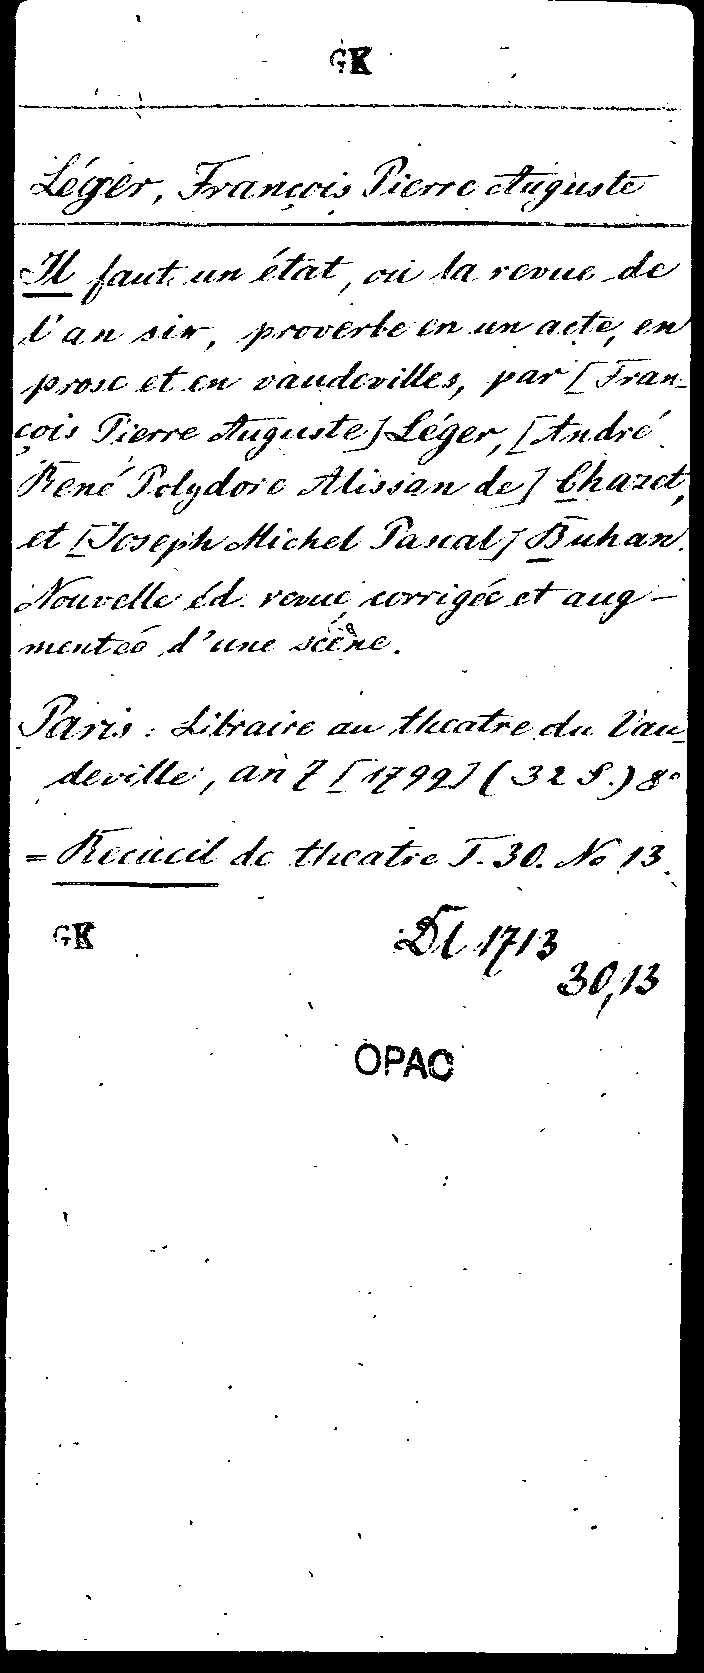 GK
Léger, François Pierre Auguste
Il faut un état, ou la revue de
l'an six, proverbe en un acte, en
prose et en vaudevilles, par [Fran-
çois Pierre Auguste] Léger, [André
René Polydore Alissan de] Chazet,
et [Joseph Michel Pascal] Buhan.
Nouvelle éd. revue, corrigée et aug-
mentée d'une scène.
Paris: Libraire au theatre du Vau-
deville, an 7 [1799] (32 S.) 8°
= Recueil de theatre T. 30. No 13.
GK Dl 1713
30,13
OPAC